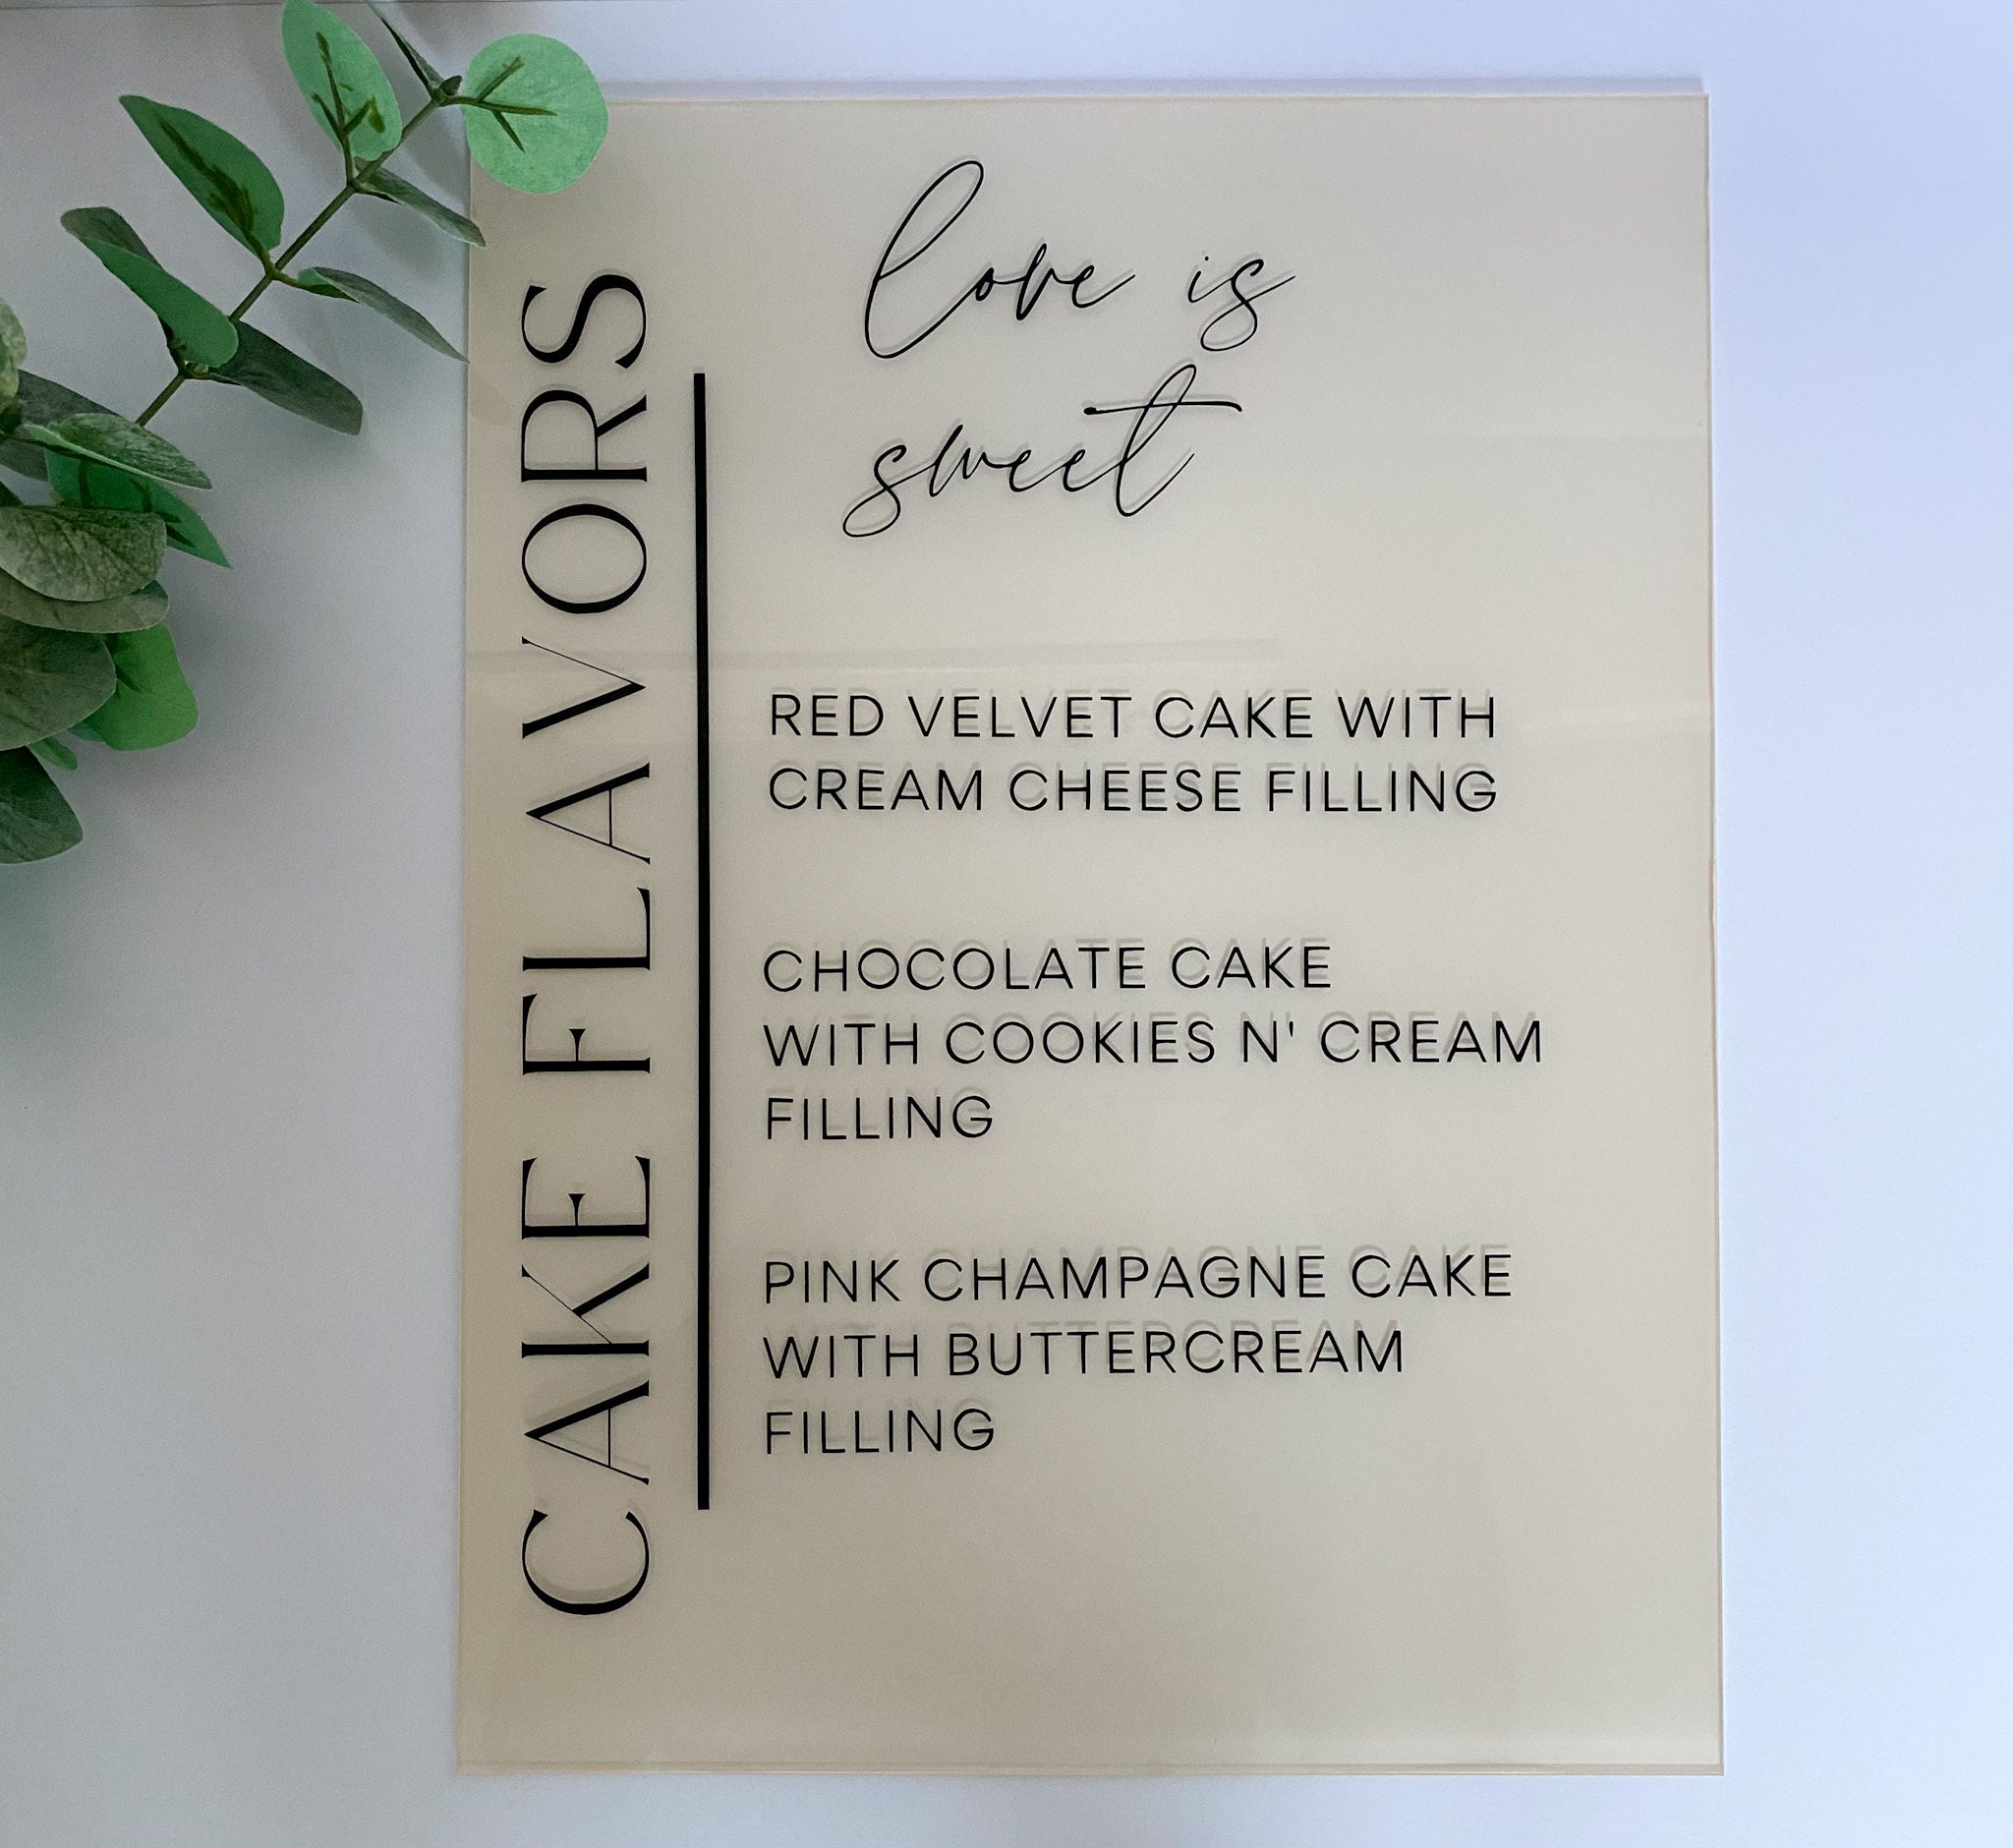 CAKE FLAVORS
love is
sweet
RED VELVET CAKE WITH
CREAM CHEESE FILLING
CHOCOLATE CAKE
WITH COOKIES N' CREAM
FILLING
PINK CHAMPAGNE CAKE
WITH BUTTERCREAM
FILLING